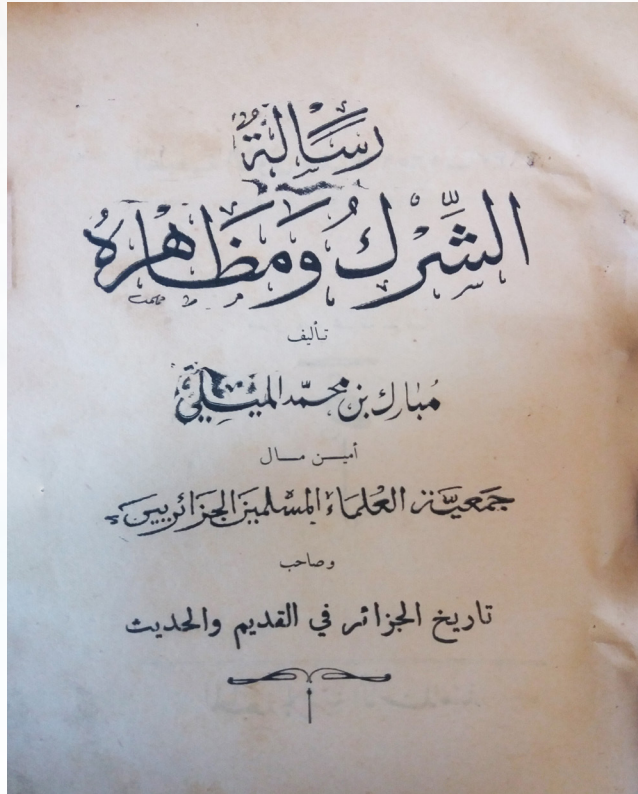 رسالة
الشرك ومظاهره
تأليف
مبارك بن محمد الميلي
أمين مال
جمعية العلماء المسلمين الجزائريين
وصاحب
تاريخ الجزائر في القديم والحديث